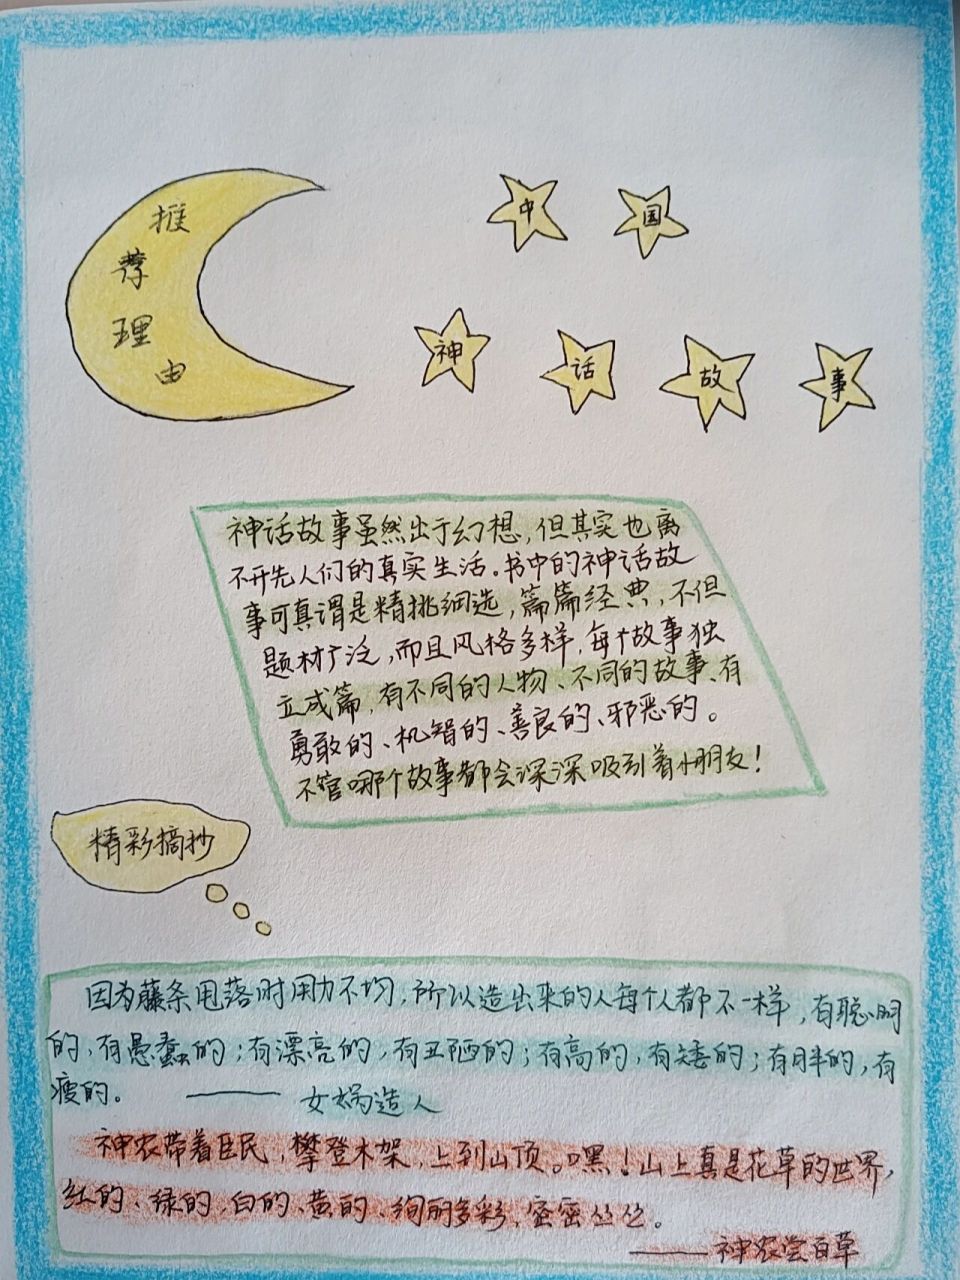 推荐理由
中国
神话故事
神话故事虽然出于幻想,但其实也离
不开先人们的真实生活。书中的神话故
事可真谓是精挑细选,篇篇经典,不但
题材广泛,而且风格多样,每个故事独
立成篇,有不同的人物、不同的故事、有
勇敢的、机智的、善良的、邪恶的。
不管哪个故事都会深深吸引着小朋友!
精彩摘抄
因为藤条甩落时用力不均,所以造出来的人每个人都不一样,有聪明
的,有愚蠢的;有漂亮的,有丑陋的;有高的,有矮的;有胖的,有
瘦的。 —— 女娲造人
神农带着臣民,攀登木架,上到山顶。嘿!山上真是花草的世界,
红的、绿的,白的、黄的、绚丽多彩,密密丛丛。
——神农尝百草